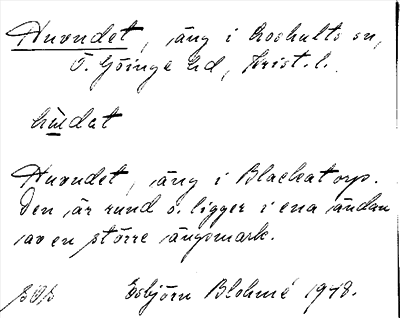 Huvudet, äng i Loshults sn,
Ö. Göinge hd, Krist. l.
Huvudet, äng i Blackatorp.
Den är rund o. ligger i ena ändan
av en större ängsmark.
Esbjörn Blohmé 1948.